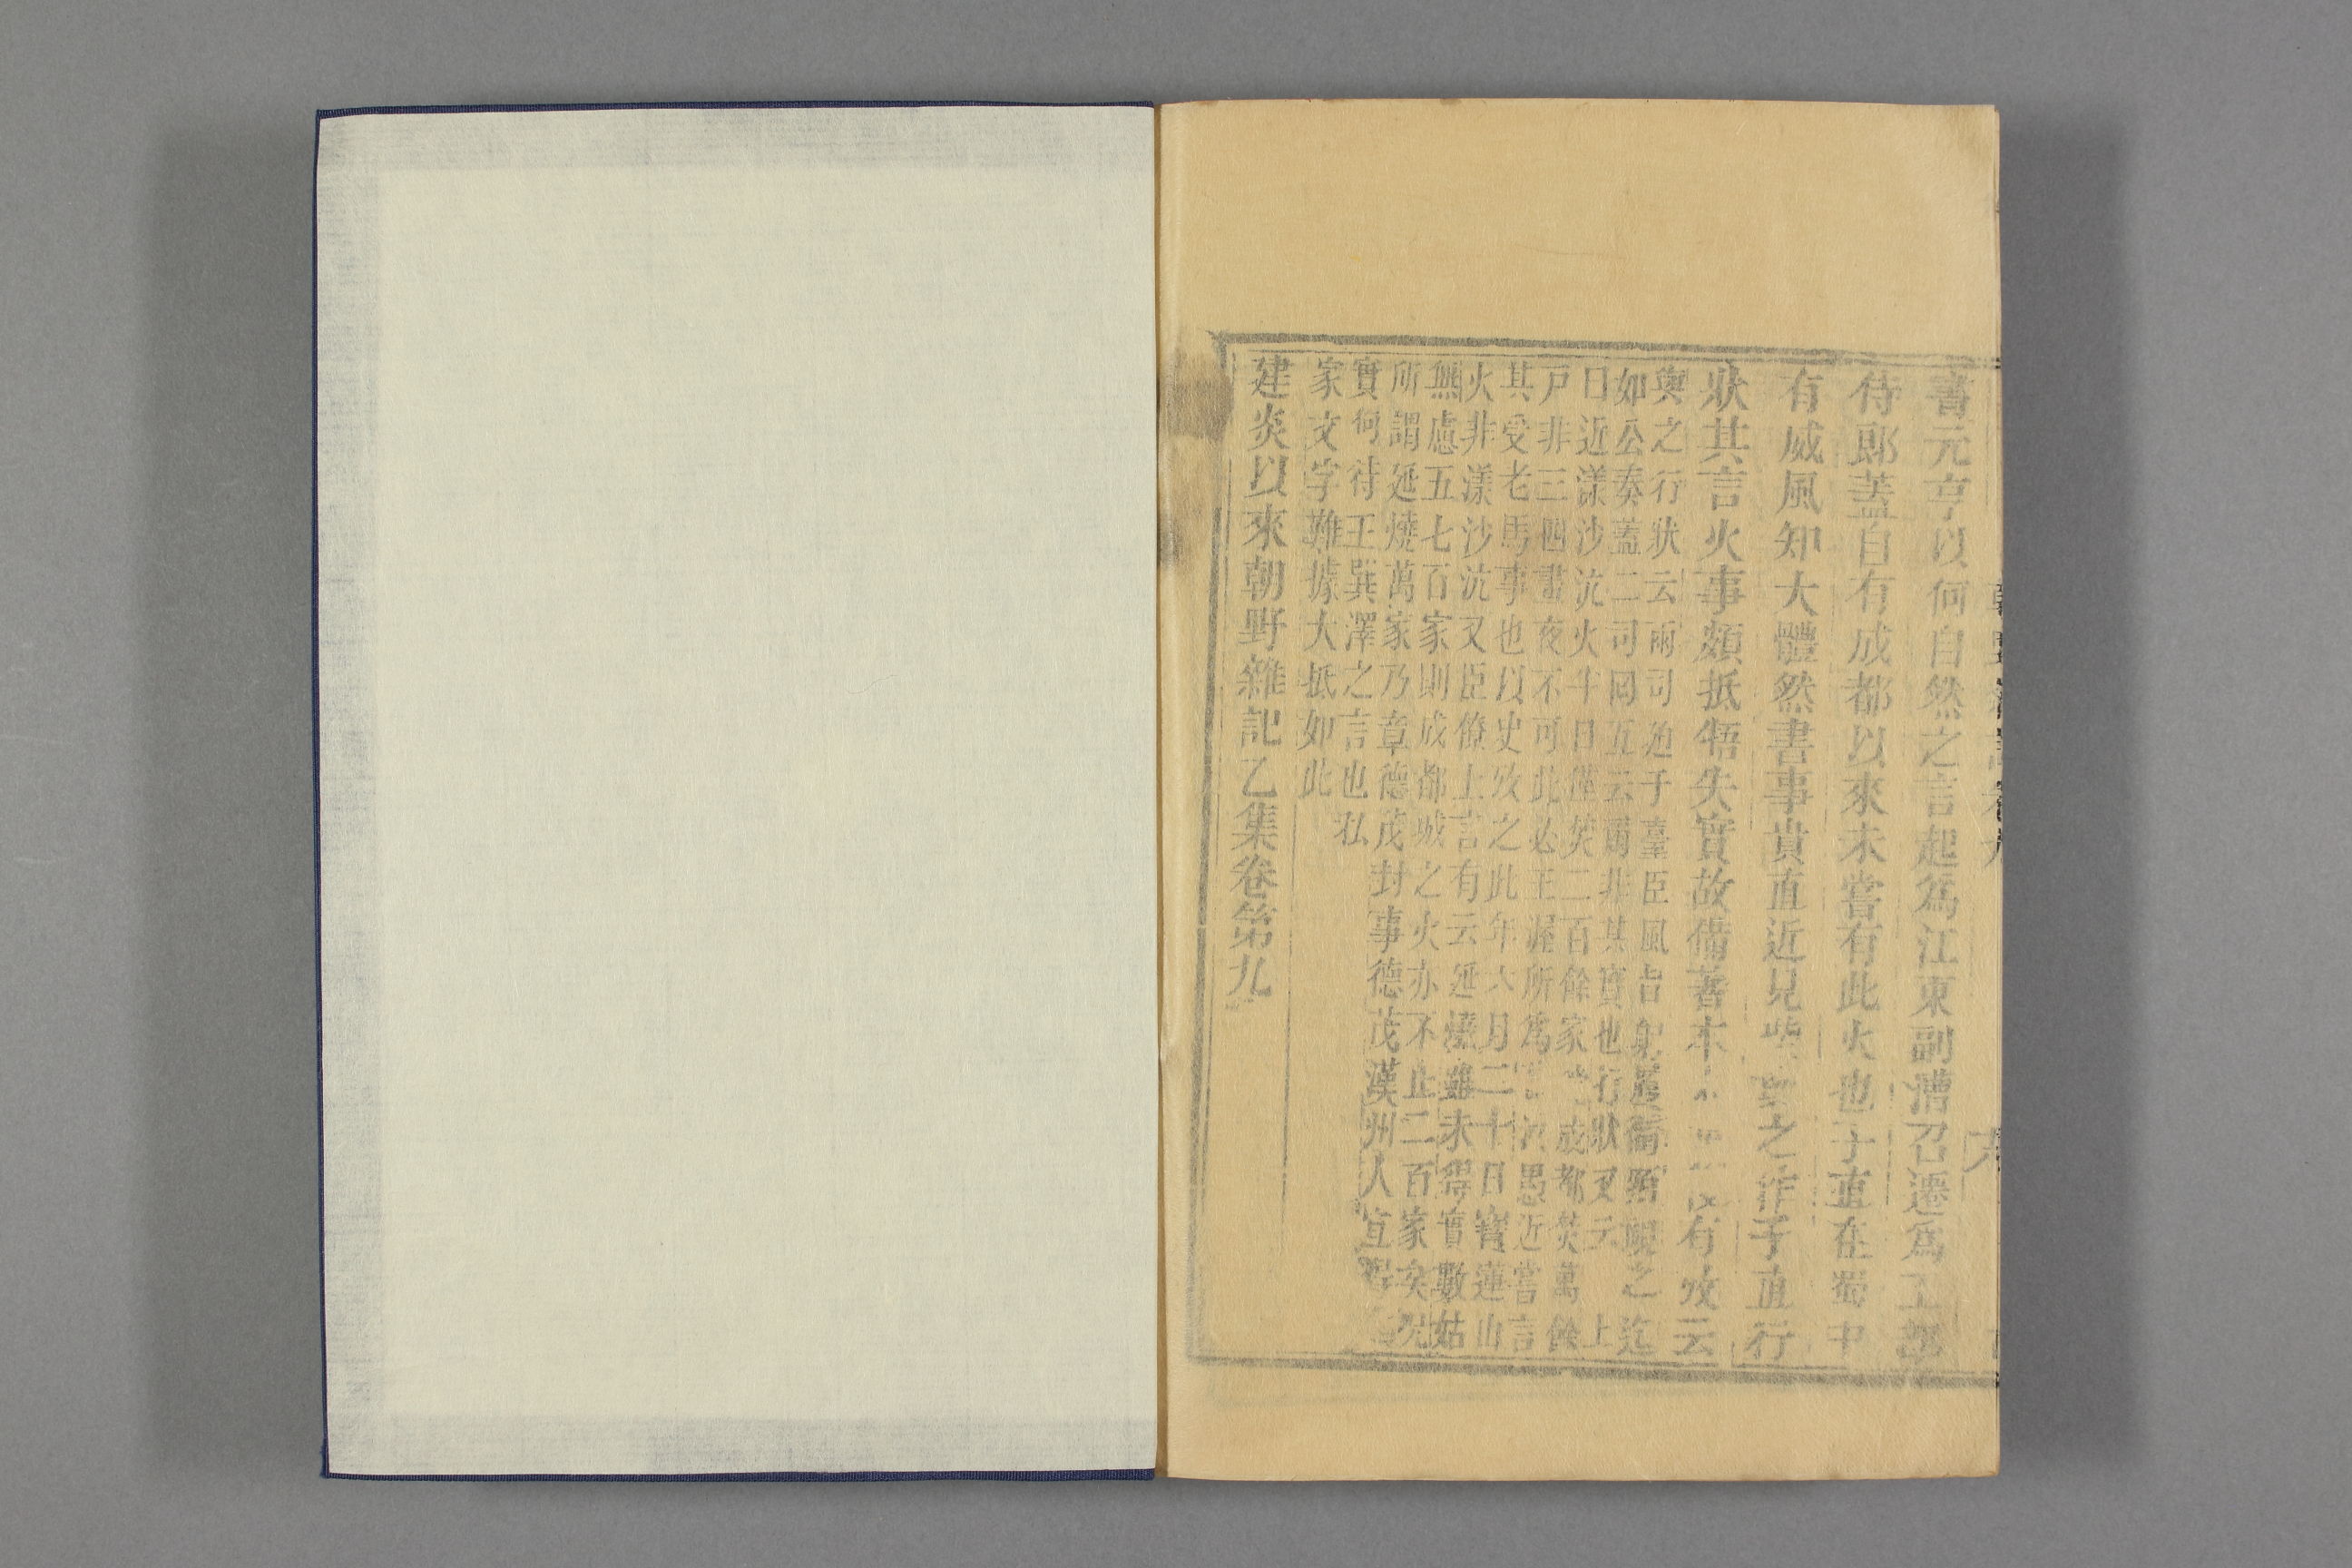 書元亨以何自然之言起爲江東副漕召遷爲工部
待郎蓋自有成都以來未嘗有此火也子直在蜀中
有威風知大體然書事貴直近見之作子直行
狀其言火事頗抵牾失實故備著有攷云
與之行狀云兩司迫于臺臣風㫖之迄
如公奏蓋二司同互云爾非其實也行狀又云上
曰近漾沙沆火斗日僅焚二百餘家成都焚萬餘
戸非三四晝夜不可此必王渥所爲愚近嘗言
其受老馬事也以史攷之此年六月二十日寳蓮山
火非漾沙沆又臣僚上言有云延燒雖未得實數姑
無慮五七百家則成都城之火亦不止二百家矣况
所謂延燒萬家乃章德茂封事德茂漢州人宜得
實何待王巽澤之言也私
家文字難據大抵如此
建炎以來朝野雜記乙集卷第九